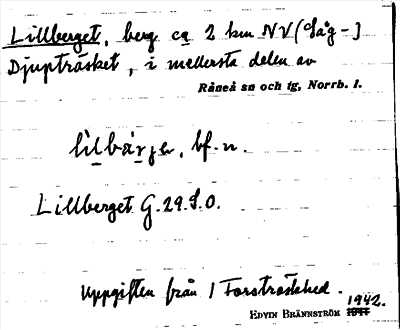 Lillberget, berg ca 2 km NV (Såg-)
Djupträsket, i mellersta delen av
Råneå sn och tg, Norrb. l.
bf. n.
Lillberget G. 29. S.O.
Uppgiften från
1942.
EDVIN BRÄNNSTRÖM 1941